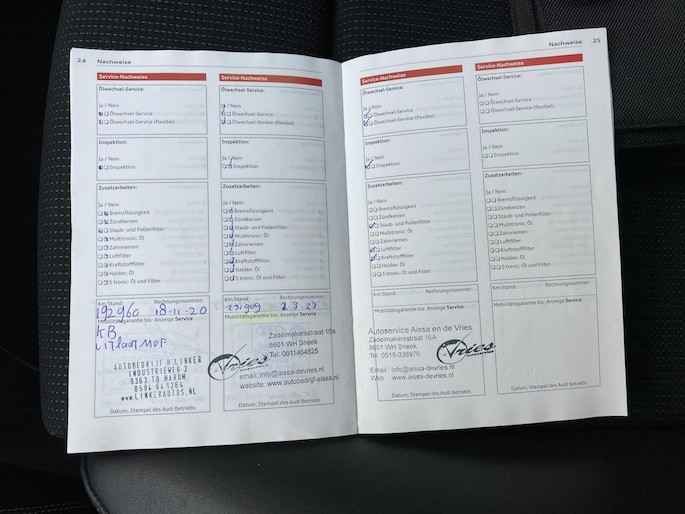 24 Nachweise
Service-Nachweise
Ölwechsel-Service:
Ja / Nein
Ölwechsel-Service
Ölwechsel-Service (flexibel)
Inspektion:
Ja / Nein
Inspektion
Zusatzarbeiten:
Ja / Nein
Bremsflüssigkeit
Zündkerzen
Staub- und Pollenfilter
Multitronic: Öl
Zahnriemen
Luftfilter
Kraftstofffilter
Haldex: Öl
S tronic: Öl und Filter
Km Stand: Rechnungsnummer:
192960 18-11-20
Mobilitätsgarantie bis: Anzeige Service
AUTOBEDRIJF H.LINKER
INDUSTRIEWEG 2
9363 TB MARUM
0594 641264
www.LINKERAUTOS.NL
Datum, Stempel des Audi Betriebs
Service-Nachweise
Ölwechsel-Service:
Ja / Nein
Ölwechsel-Service
Ölwechsel-Service (flexibel)
Inspektion:
Ja / Nein
Inspektion
Zusatzarbeiten:
Ja / Nein
Bremsflüssigkeit
Zündkerzen
Staub- und Pollenfilter
Multitronic: Öl
Zahnriemen
Luftfilter
Kraftstofffilter
Haldex: Öl
S tronic: Öl und Filter
Km Stand: Rechnungsnummer:
Mobilitätsgarantie bis: Anzeige Service
Zadelmakersstraat 16a
8601 WH Sneek
Tel: 0611484825
Vries
email: info@aissa-devries.nl
website: www.autobedrijf-aissa.nl
Datum, Stempel des Audi Betriebs
Nachweise 25
Service-Nachweise
Ölwechsel-Service:
Ja / Nein
Ölwechsel-Service
Ölwechsel-Service (flexibel)
Inspektion:
Ja / Nein
Inspektion
Zusatzarbeiten:
Ja / Nein
Bremsflüssigkeit
Zündkerzen
Staub- und Pollenfilter
Multitronic: Öl
Zahnriemen
Luftfilter
Kraftstofffilter
Haldex: Öl
S tronic: Öl und Filter
Km Stand: Rechnungsnummer:
Mobilitätsgarantie bis: Anzeige Service
Autoservice Aissa en de Vries
Zadelmakersstraat 16A
8601 WH Sneek
Tel: 0515-336976
Vries
Email: info@aissa-devries.nl
Web : www.aissa-devries.nl
Datum, Stempel des Audi Betriebs
Service-Nachweise
Ölwechsel-Service:
Ja / Nein
Ölwechsel-Service
Ölwechsel-Service (flexibel)
Inspektion:
Ja / Nein
Inspektion
Zusatzarbeiten:
Ja / Nein
Bremsflüssigkeit
Zündkerzen
Staub- und Pollenfilter
Multitronic: Öl
Zahnriemen
Luftfilter
Kraftstofffilter
Haldex: Öl
S tronic: Öl und Filter
Km Stand: Rechnungsnummer:
Mobilitätsgarantie bis: Anzeige Service
Datum, Stempel des Audi Betriebs